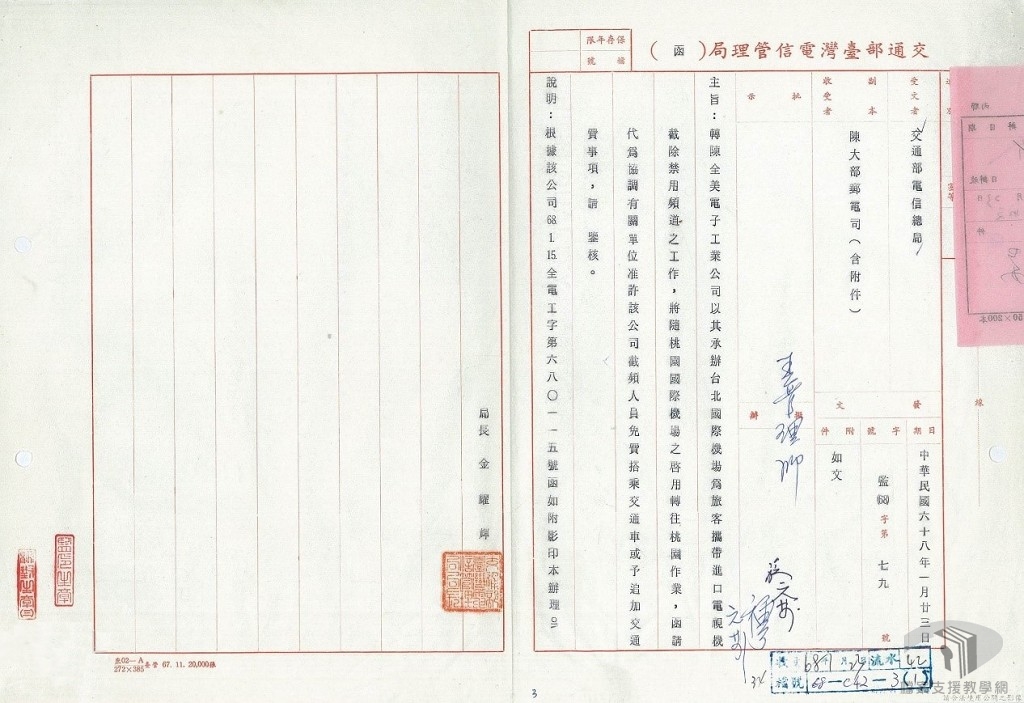 交通部臺灣電信管理局（函）
保存年限
檔號
受文者
交通部電信總局
副本收受者
陳大部郵電司（含附件）
批示
擬辦
發文
日期
中華民國六十八年一月廿三日
字號
監(68)字第七九號
附件
如文
主旨：轉陳全美電子工業公司以其承辦台北國際機場為旅客攜帶進口電視機
截除禁用頻道之工作，將隨桃園國際機場之啓用轉往桃園作業，函請
代為協調有關單位准許該公司截頻人員免費搭乘交通車或予追加交通
費事項，請　鑒核。
說明：根據該公司68.1.15.全電工字第六八〇一一五號函如附影印本辦理。
局長　金耀輝
線
表02—A
272×385
臺管 67. 11. 20,000張
3
流水
檔號
68—C42—3(1)
檔案支援教學網